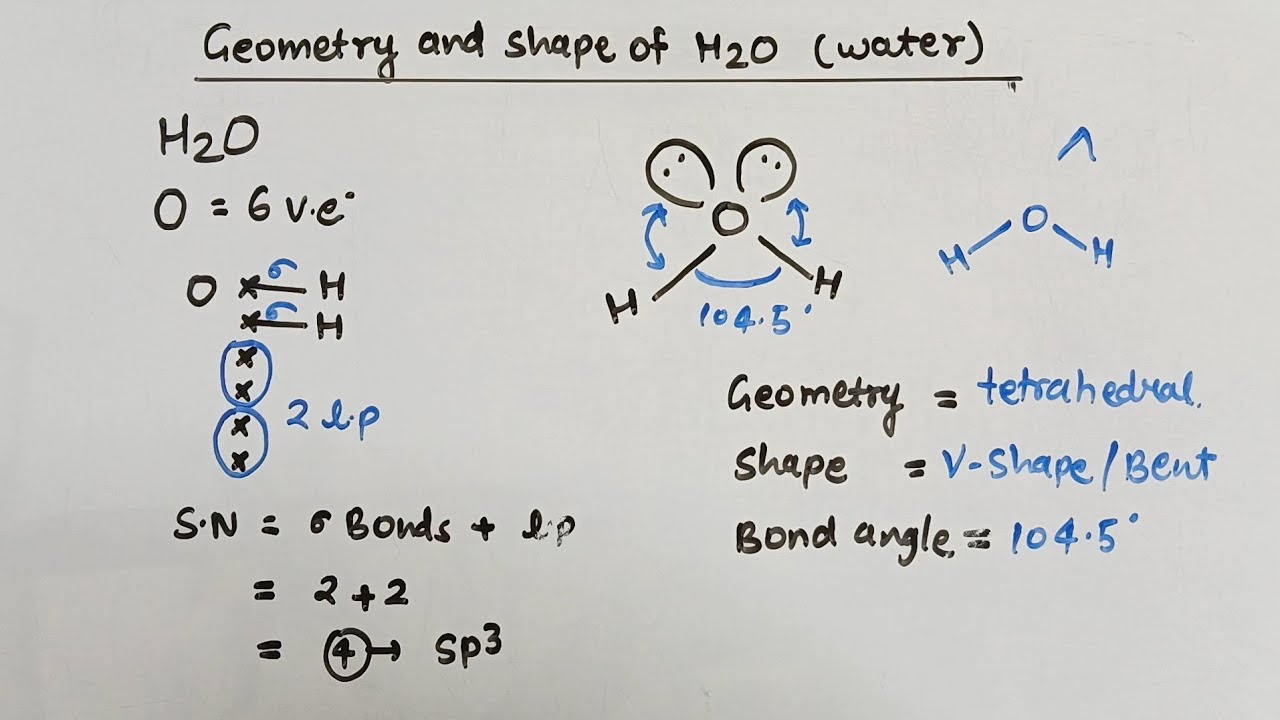 Geometry and shape of H2O (water)
H2O
O = 6 v.e-
O × σ H
× σ H
×
×
×
×
2 l.p
S.N = σ Bonds + l.p
= 2 + 2
= 4 → sp3
O
H H
104.5°
O
H H
Geometry = tetrahedral.
Shape = V-Shape/Bent
Bond angle = 104.5°